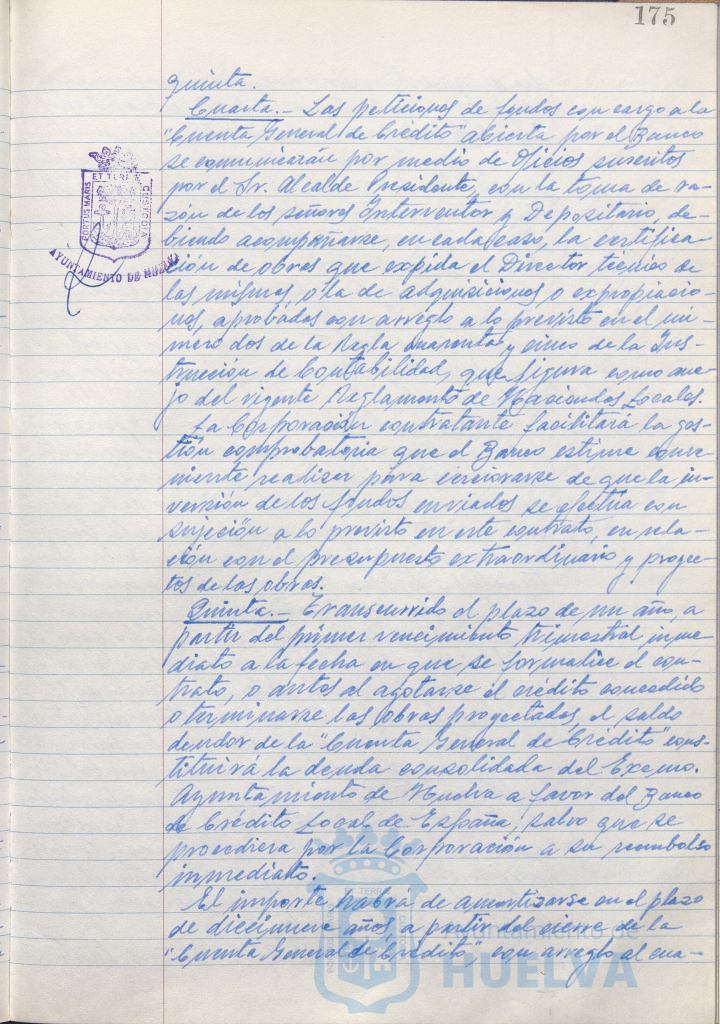 175
quinta.
Cuarta.- Las peticiones de fondos con cargo a la
"Cuenta General de Crédito" abierta por el Banco
se comunicarán por medio de Oficios suscritos
por el Sr. Alcalde Presidente, con la toma de ra-
zón de los señores Interventor y Depositario, de-
biendo acompañarse, en cada caso, la certifica-
ción de obras que expida el Director técnico de
las mismas, o la de adquisiciones o expropiacio-
nes, aprobadas con arreglo a lo previsto en el nú-
mero dos de la Regla cuarenta y cinco de la Ins-
trucción de Contabilidad, que figura como ane-
jo del vigente Reglamento de Haciendas Locales.
La Corporación contratante facilitará la ges-
tión comprobatoria que el Banco estime conve-
niente realizar para cerciorarse de que la in-
versión de los fondos enviados se efectúa con
sujeción a lo previsto en este contrato, en rela-
ción con el presupuesto extraordinario y proyec-
tos de las obras.
Quinta.- Transcurrido el plazo de un año, a
partir del primer vencimiento trimestral inme-
diato a la fecha en que se formalice el con-
trato, o antes al agotarse el crédito concedido
o terminarse las obras proyectadas, el saldo
deudor de la "Cuenta General de Crédito" cons-
tituirá la deuda consolidada del Excmo.
Ayuntamiento de Huelva a favor del Banco
de Crédito Local de España, salvo que se
procediera por la Corporación a su reembolso
inmediato.
El importe habrá de amortizarse en el plazo
de diecinueve años a partir del cierre de la
"Cuenta General de Crédito" con arreglo al cua-
PORTUS MARIS
ET TERRE
CUSTODIA
AYUNTAMIENTO DE HUELVA
Ayuntamiento de
HUELVA